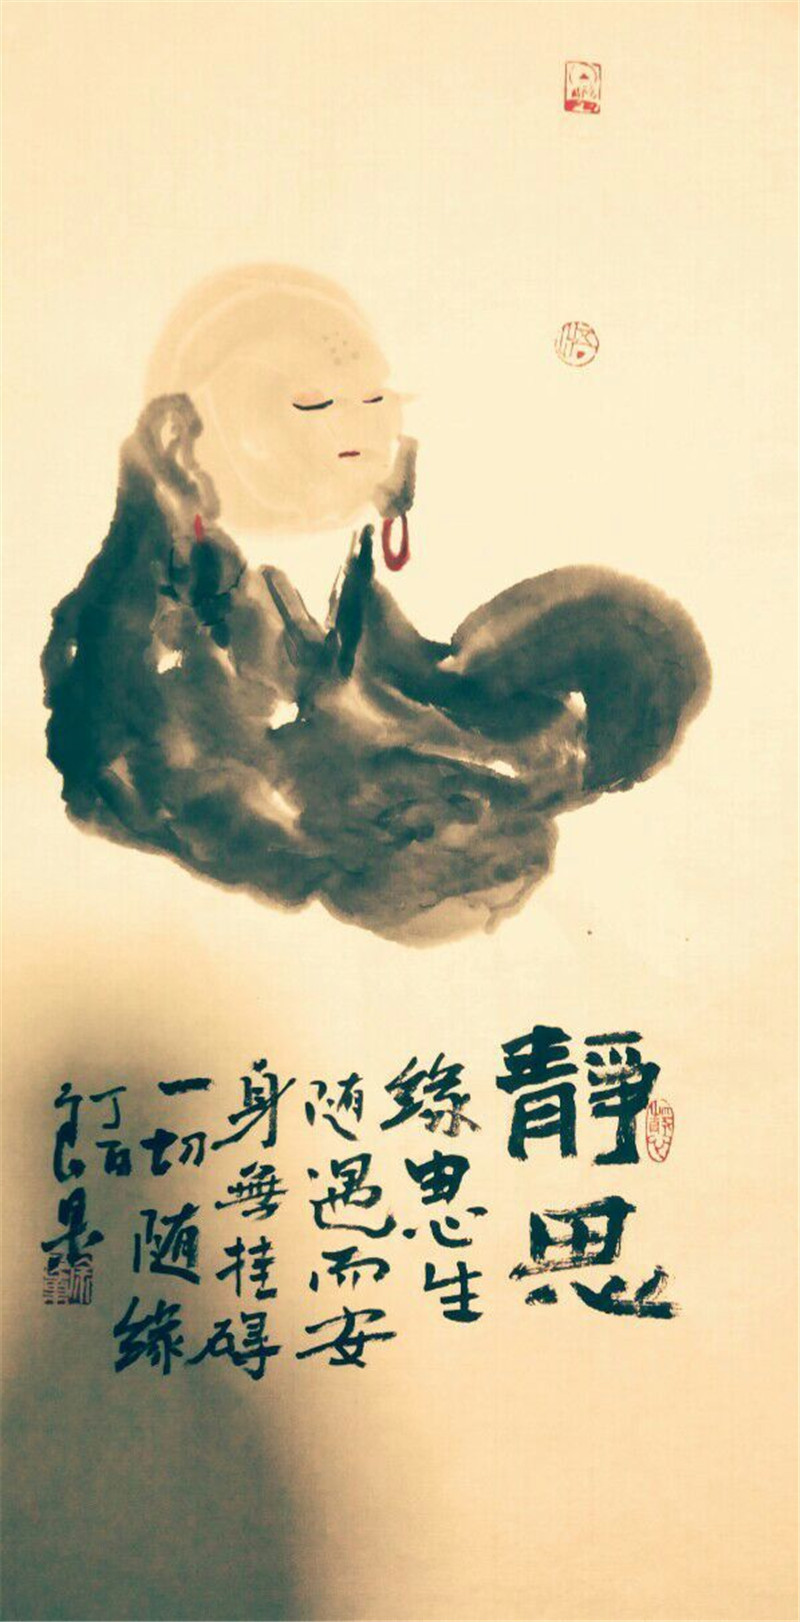 悟
靜思
緣由心生
随遇而安
身無挂碍
一切随緣
丁酉